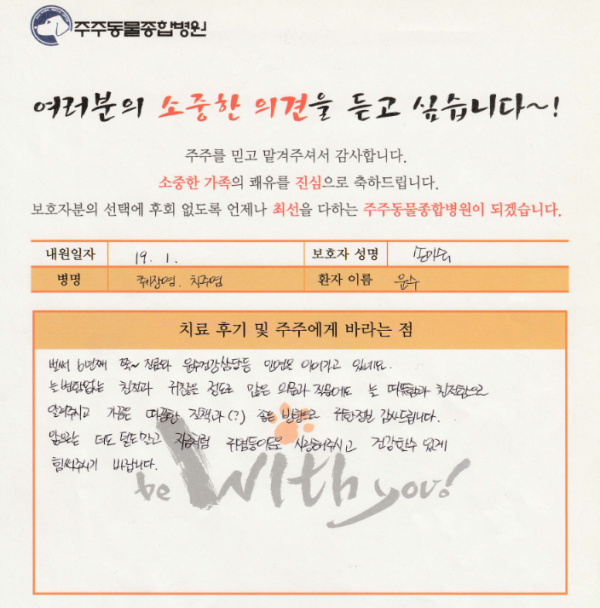 주주동물종합병원
여러분의 소중한 의견을 듣고 싶습니다~!
주주를 믿고 맡겨주셔서 감사합니다.
소중한 가족의 쾌유를 진심으로 축하드립니다.
보호자분의 선택에 후회 없도록 언제나 최선을 다하는 주주동물종합병원이 되겠습니다.
내원일자 19. 1. 보호자 성명
병명 췌장염. 치주염 환자 이름 윤수
치료 후기 및 주주에게 바라는 점
벌써 6번째 쭉~ 진료와 윤수건강상담등 인연은 이어가고 있네요.
늘 변함없는 친절과 귀찮을 정도로 많은 의문과 걱정에도 늘 따뜻함과 친절함으로
알려주시고 가끔은 따끔한 질책과(?) 좋은 방향으로 감사드립니다.
앞으로도 더도 덜도말고 지금처럼 귀염둥이들로 사랑해주시고 건강할수 있게
힘써주시기 바랍니다.
be With you!